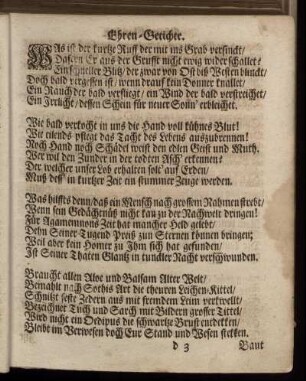 Ehren-Gerichte.
WAs ist der kurtze Ruff der mit ins Grab versinckt/
Dafern Er aus der Grufft nicht ewig wider schallet?
Ein schneller Blitz/ der zwar von Ost biß Westen blinckt/
Doch bald vergehen ist/ wenn drauf kein Donner knallet/
Ein Rauch der bald verfliegt/ ein Wind der bald verstreichet/
Ein Irrlicht/ dessen Schein für neuer Sonn' erbleichet.
Wie bald verkocht in uns die Hand voll kühnes Blut!
Wie eilends pflegt das Tacht des Lebens auszubrennen!
Noch Hand noch Schädel weist den edlen Geist und Muth.
Wer wil den Zunder in der todten Asch' erkennen:
Der welcher unser Lob erhalten solt' auf Erden/
Muß dess' in kurtzer Zeit ein stummer Zeuge werden.
Was hilffts denn/ daß ein Mensch nach grossem Nahmen strebt/
Wenn sein Gedächtnüß nicht kau zu der Nachwelt dringen!
Für Agamemnons Zeit hat mancher Held gelebt/
Dehn Seine Tugend Preiß zun Sternen können bringen;
Weil aber kein Homer zu Ihm sich hat gefunden/
Ist Seiner Thaten Glantz in tunckler Nacht verschwunden.
Braucht allen Aloe und Balsam Alter Welt/
Bemahlt nach Sothis Art die theuren Leichen-Kittel/
Schnitzt feste Zedern aus mit fremdem Leim verkwellt/
Bezeichnet Tuch und Sarch mit Bildern grosser Tittel/
Wird nicht ein Oedipus die schwartze Brust entdekken/
Bleibt im Verwesen doch Eur Stand und Wesen stekken.
d 3
Baut